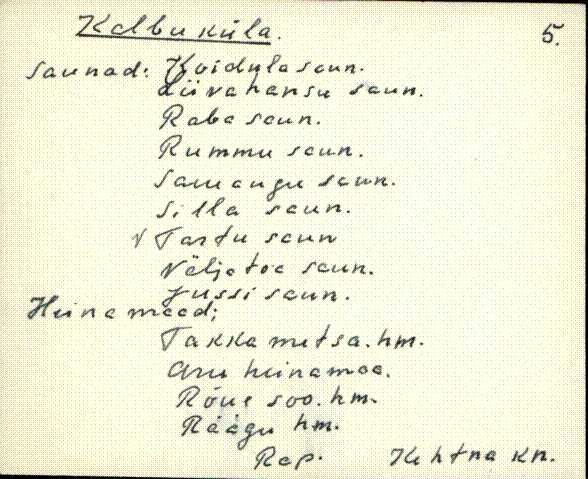 Kalbu küla. 5.
saunad: Koidula saun.
Liivahansu saun.
Raba saun.
Rummu saun.
Samaugu saun.
Silla saun.
√ Tartu saun
Väljatoa saun.
Jussi saun.
Heinamaad:
Takka metsa. hm.
Aru heinamaa.
Rõue soo. hm.
Räägu hm.
Rap. Kehtna kn.